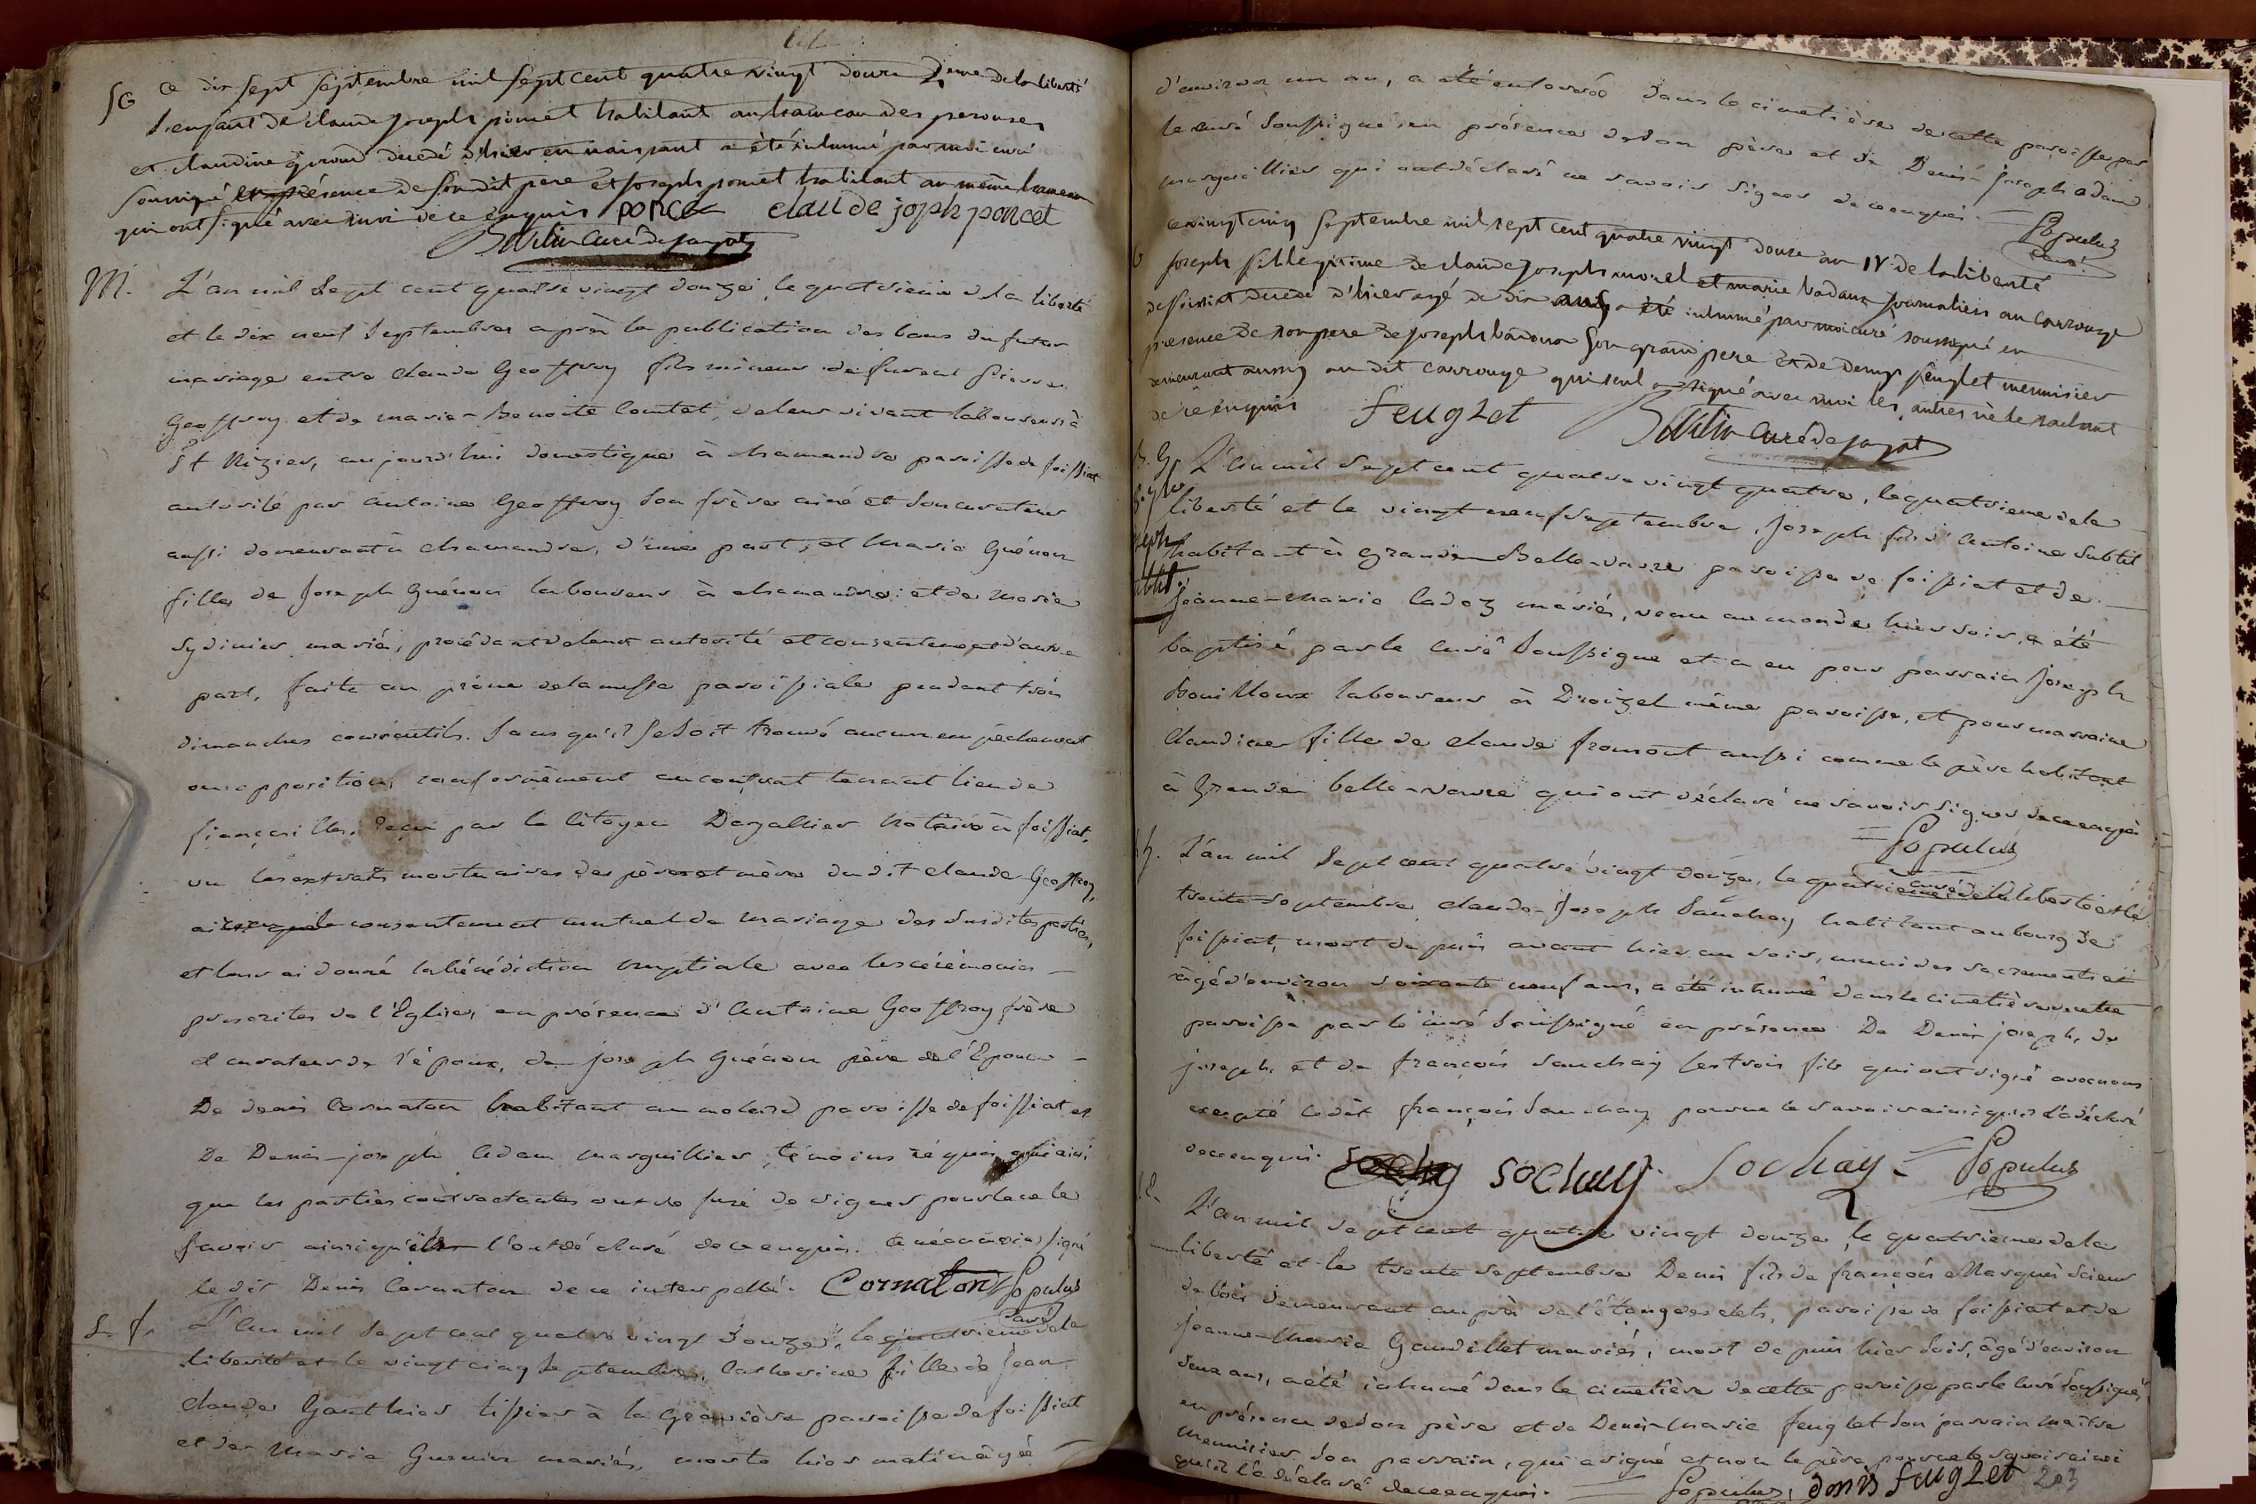 SG ce dix sept septembre mil sept cent quatre vingt douze 4eme de la liberté
l'enfant de claude joseph poncet habitant au hameau des perouses
et claudine decedé d'hier en naissant a été inhumé par moi curé
soussigné en présence de son dit pere et joseph poncet habitant au même hameau
qui ont signé avec moi de ce enquis poncet claude joph poncet
curé de jayat
M. L'an mil sept cent quatre vingt douze, le quatrième de la liberté
et le dix neuf septembre après la publication des bans du futur
mariage entre claude Geoffroy fils mineur de furent pierre
Geoffroy et de marie Benoite Contet, de leur vivant laboureurs à
St Nizier, aujourd'hui domestique à chamandre paroisse de foissiat
autorisé par antoine Geoffroy son frère ainé et son curateur
aussi demeurant à chamandre, d'une part, et marie Guénon
fille de Joseph Guénon laboureur à chamandre et de marie
mariés, procédant de leur autorité et consentement d'autre
part, faite au prône de la messe paroissiale pendant trois
dimanches consécutifs. Sans qu'il se soit trouvé aucun empêchement
ou opposition, conformément au contrat tenant lieu de
fiançailles, reçu par le citoyen Dagallier notaire à foissiat,
vu les extraits mortuaires des pères et mères dudit claude Geoffroy,
ai reçu le consentement mutuel de mariage des susdites parties,
et leur ai donné la bénédiction nuptiale avec les cérémonies
prescrites de l'Eglise, en présence d'Antoine Geoffroy frère
et curateur de l'époux, de joseph Guénon père de l'Epouse
De denis Cornaton habitant au molard paroisse de foissiat et
De Denis-joseph Adam marguillier, témoins réquis qui ainsi
que les parties contractantes ont refusé de signer pour ne le
savoir ainsi qu'ils l'ont déclaré de ce enquis. à néanmoins signé
le dit Denis Cornaton de ce interpellé. Cornaton Populus
Curé
S. f. L'An mil sept cent quatre vingt douze, le quatrième de la
liberté et le vingt cinq septembre, Catherine fille de Jean
claude Gauthier tissier à la Gravière paroisse de foissiat
et de Marie Guenin mariés, morte hier matin âgée
d'environ un an, a été enterrée dans le cimetière de cette paroisse par
le curé soussigné en présence de son père et de Denis Joseph Adam
marguillier qui ont déclaré ne savoir signer de ce enquis. Populus
Curé
ce vingt cinq septembre mil sept cent quatre vingt douze an IV de la liberté
joseph fils légitime de claude joseph morel et marie badoux journaliers au carrouge
de foissiat decedé d'hier agé de dix ans a été inhumé par moi curé soussigné en
présence de son pere de joseph badoux son grand pere et de denys feuglet menuisier
demeurant aussy au dit carrouge qui seul a signé avec moi les autres ne le sachant
de ce enquis feuglet curé de jayat
L'An mil sept cent quatre vingt quatre, le quatrieme de la
liberté et le vingt neuf septembre, Joseph fils d'Antoine Subtil
habitant à grande Bellevavre paroisse de foissiat et de
jeanne-marie Cadoz mariés, venu au monde hier soir, a été
baptisé par le curé soussigné et a eu pour parrain Joseph
Bouilloux laboureur à Droizel même paroisse, et pour marraine
Claudine fille de claude fromont aussi comme le père habitant
à grande bellevavre qui ont déclaré ne savoir signer de ce enquis
Populus
curé
L'an mil sept cent quatre vingt douze, le quatrieme de la liberté et le
trente septembre claude-Joseph Sauchay habitant au bourg de
foissiat, mort depuis avant hier au soir, muni des sacrements et
âgé d'environ soixante neuf ans, a été inhumé dans le cimetière de cette
paroisse par le curé soussigné en présence De Denis-joseph, de
joseph, et de françois Sauchay les trois fils qui ont signé avec nous
excepté ledit françois Sauchay pour ne le savoir ainsi qu'il l'a déclaré
de ce enquis. sochay sochay Populus
L'an mil sept cent quatre vingt douze, le quatrieme de la
liberté et le trente septembre Denis fils de françois Marguis scieur
de bois demeurant auprès de l'étang des clets, paroisse de foissiat et de
jeanne-marie Gaudillet mariés, mort depuis hier soir, âgé d'environ
deux ans, a été inhumé dans le cimetière de cette paroisse par le curé soussigné,
en présence de son père et de Denis-marie feuglet son parrain maître
menuisier, son parrain, qui a signé et non le père pour ne le savoir ainsi
qu'il l'a déclaré de ce enquis. Populus, denis feuglet 203